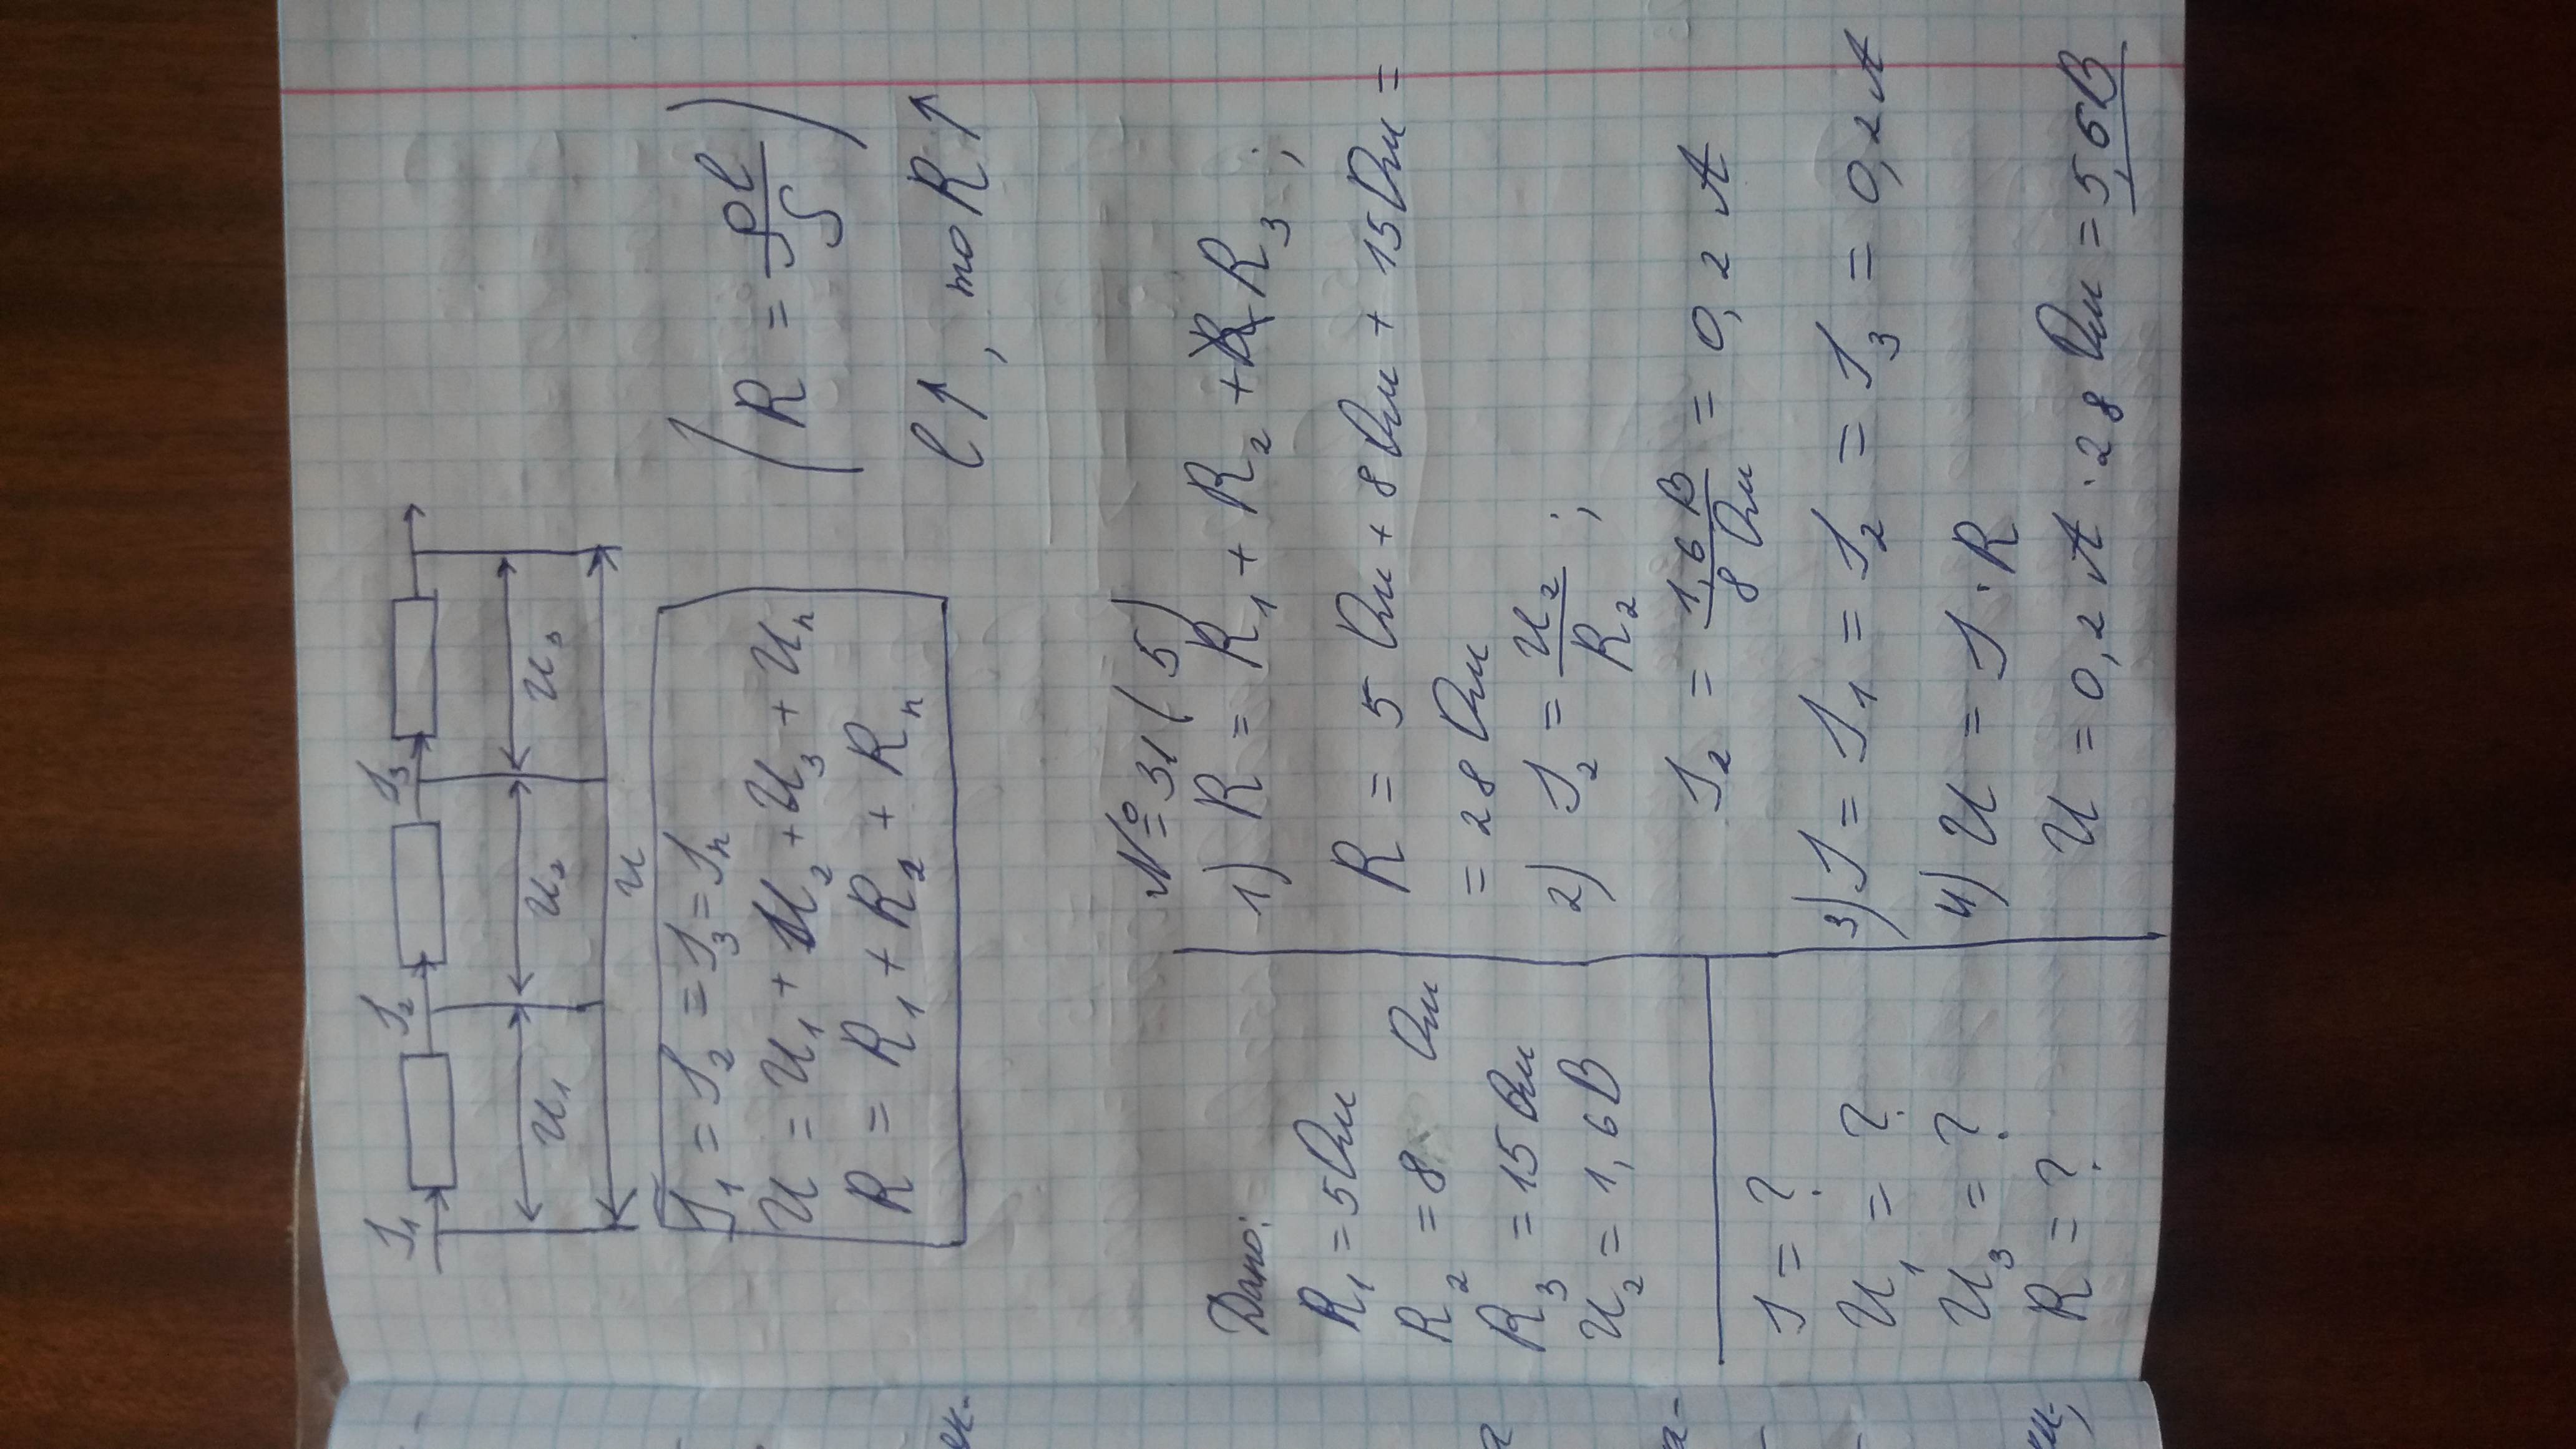 I₁ I₂ I₃
U₁ U₂ U₃
U
I₁ = I₂ = I₃ = Iₙ
U = U₁ + U₂ + U₃ + Uₙ
R = R₁ + R₂ + Rₙ
(R = ρl/S)
l↑, то R↑
Дано:
R₁ = 5 Ом
R₂ = 8 Ом
R₃ = 15 Ом
U₂ = 1,6 В
I = ?
U₁ = ?
U₃ = ?
R = ?
1) R = R₁ + R₂ + R₃;
R = 5 Ом + 8 Ом + 15 Ом =
= 28 Ом
2) I₂ = U₂/R₂;
I₂ = 1,6 В/8 Ом = 0,2 А
3) I = I₁ = I₂ = I₃ = 0,2 А
4) U = I · R
U = 0,2 А · 28 Ом = 5,6 В